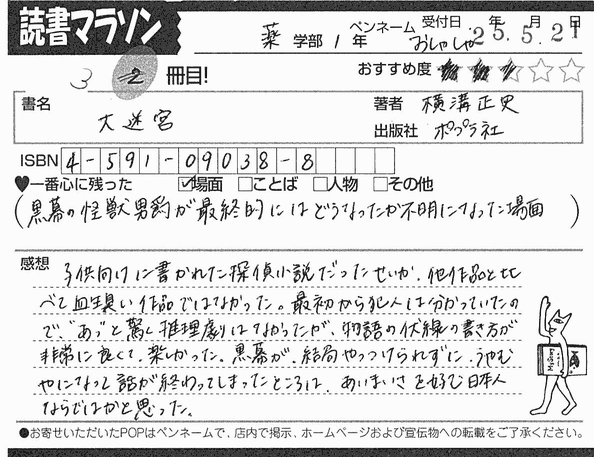 読書マラソン
薬 学部 1 年 ペンネーム おしゃしゃ 受付日 25年5.月21日
3 2 冊目!
おすすめ度 ★★★☆☆
書名 大迷宮
著者 横溝正史
出版社 ポプラ社
ISBN 4-591-09038-8
♥一番心に残った ☑場面 □ことば □人物 □その他
(黒幕の怪獣男爵が最終的にはどうなったか不明になった場面)
感想
子供向けに書かれた探偵小説だったせいか、他作品と比
べて血生臭い作品ではなかった。最初から犯人は分かっていたの
で、"あっ"と驚く推理劇ではなかったが、物語の伏線の書き方が
非常に良くて、楽しかった。黒幕が、結局やっつけられずに、うやむ
やになって話が終わってしまったところは、あいまいさを好む日本人
ならではかと思った。
●お寄せいただいたPOPはペンネームで、店内で掲示、ホームページおよび宣伝物への転載をご了承ください。